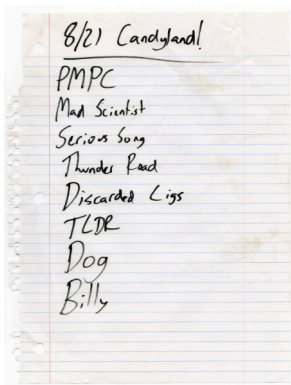 8/21 Candyland!
PMPC
Mad Scientist
Serious Song
Thunder Road
Discarded Ligs
TLDR
Dog
Billy